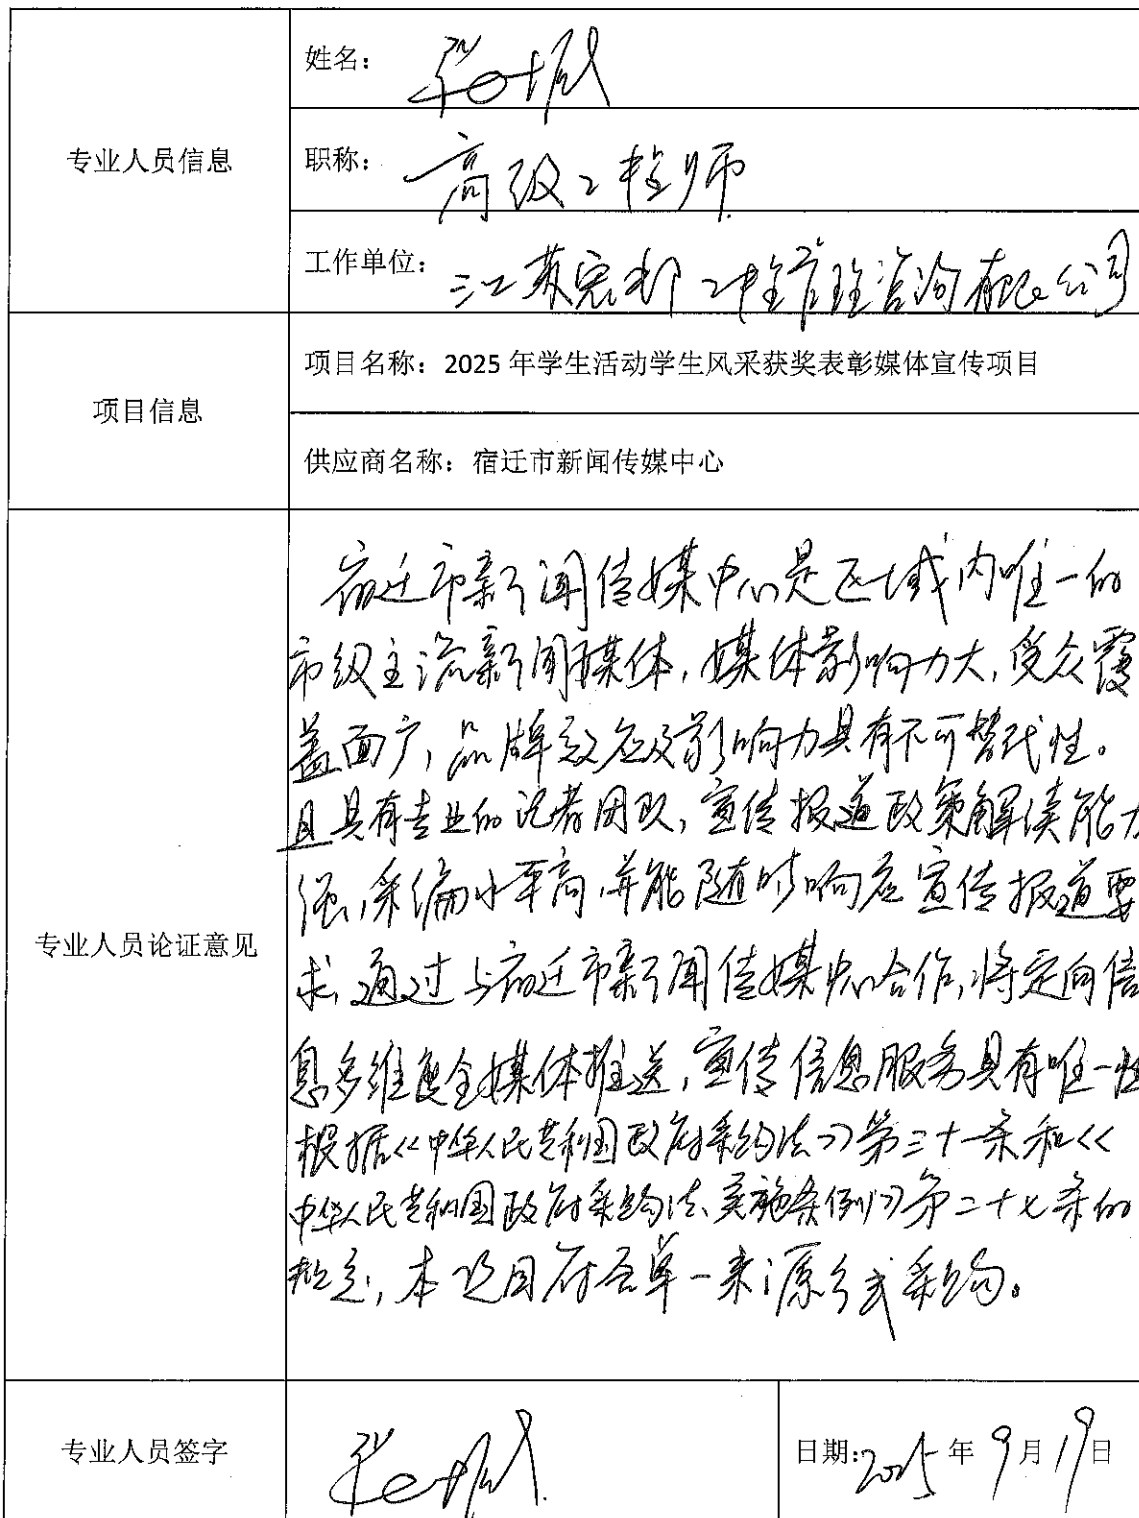 专业人员信息
姓名:
职称: 高级工程师
工作单位: 江苏宏邦工程管理咨询有限公司
项目信息
项目名称: 2025 年学生活动学生风采获奖表彰媒体宣传项目
供应商名称: 宿迁市新闻传媒中心
专业人员论证意见
宿迁市新闻传媒中心是区域内唯一的
市级主流新闻媒体,媒体影响力大,受众覆
盖面广,品牌效应及影响力具有不可替代性。
且具有专业的记者团队,宣传报道政策解读能力
强,采编水平高,并能随时响应宣传报道要
求,通过与宿迁市新闻传媒中心合作,将定向信
息多维度全媒体推送,宣传信息服务具有唯一性
根据《中华人民共和国政府采购法》第三十一条和《
中华人民共和国政府采购法实施条例》第二十七条的
规定,本项目符合单一来源方式采购。
专业人员签字
日期:2025 年 9 月 19 日